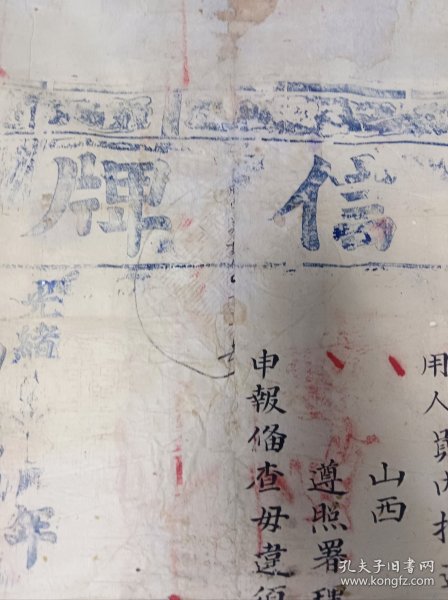 信牌
用人員
山西
遵照署理
申報俻查毋違須
光緒 年
孔夫子旧书网
www.kongfz.com